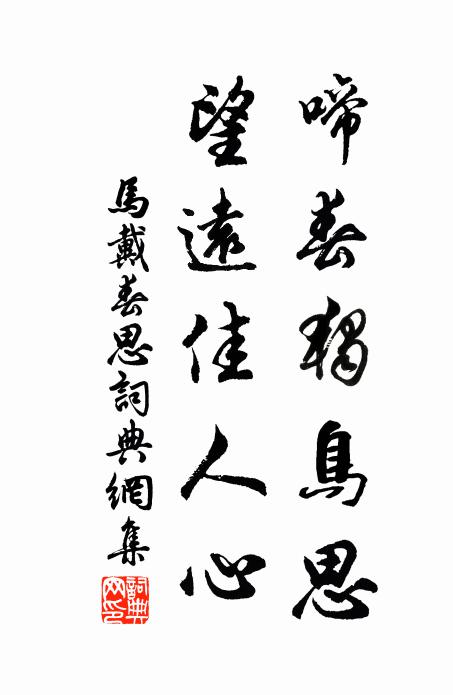 啼春獨鳥思
望遠佳人心
馬戴春思詞典網集
詞典网印